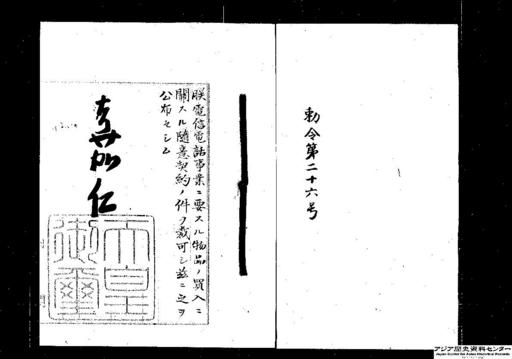 勅令第二十六号
朕電信電話事業ニ要スル物品ノ買入ニ
關スル隨意契約ノ件ヲ裁可シ茲ニ之ヲ
公布セシム
嘉仁
天皇
御璽
アジア歴史資料センター
Japan Center for Asian Historical Records